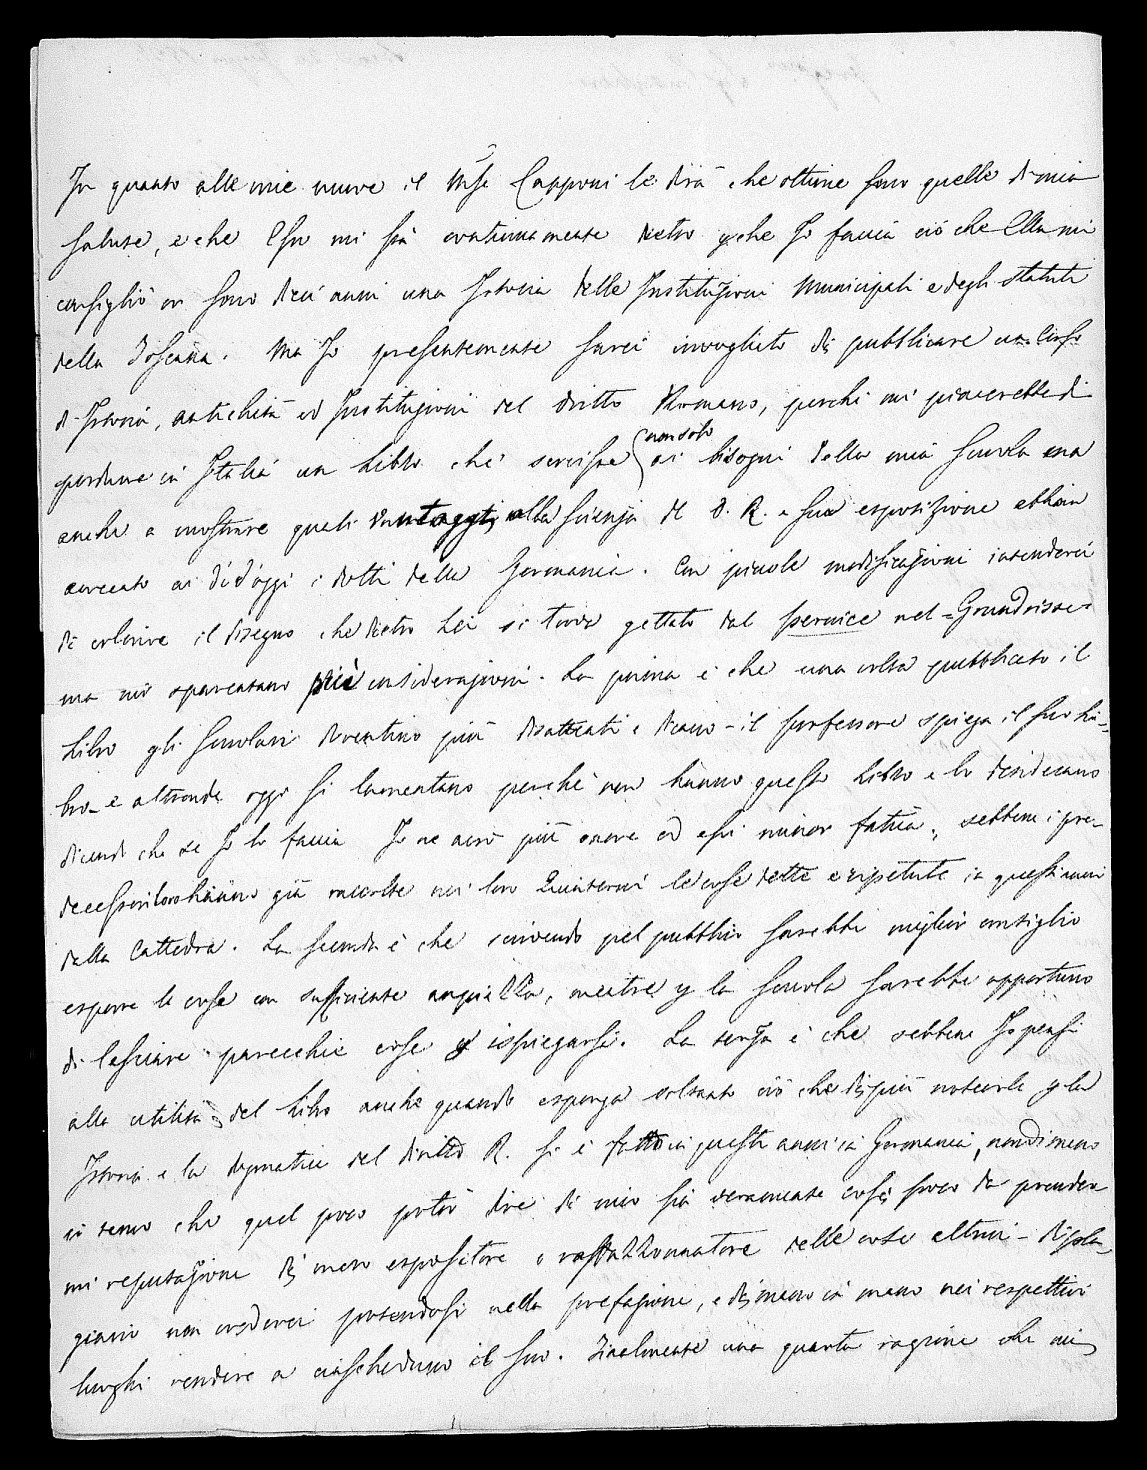 In quanto alle mie nuove il Mse Capponi le dirà che ottime sono quelle di mia
salute, e che Esso mi stà continuamente dietro pche Io faccia ciò che Ella mi
consigliò or sono dieci anni una Istoria delle Instituzioni Municipali e degli statuti
della Toscana. Ma Io presentemente sarei invogliato di pubblicare un Corso
di Istoria, antichità ed Instituzioni del diritto Romano, perchè mi piacerebbe di
produrre in Italia un Libro che servisse non solo ai bisogni della mia Scuola ma
anche a mostrare quali vantaggi alla scienza del D. R. e sua esposizione abbian
arrecato ai dì d'oggi i dotti della Germania. Con piccole modificazioni intenderei
di colorire il disegno che dietro Lei si trova gettato dal Pernice nel = Grundrisse =
ma mi spaventano più considerazioni. La prima è che una volta pubblicato il
Libro gli Scuolari diventino più disattenti e dicano - il professore spiega il suo Li-
bro - e altronde oggi si lamentano perchè non hanno questo Libro e lo desiderano
dicendo che se Io lo faccia Io ne avrò più onore ed essi minor fatica, sebbene i pre-
decessori loro hanno già raccolte nei loro Quinterni le cose dette e ripetute in questi anni
dalla Cattedra. La seconda è che scrivendo pel pubblico sarebbe miglior consiglio
esporre le cose con sufficiente ampiezza, mentre p la Scuola sarebbe opportuno
di lasciare parecchie cose a spiegarsi. La terza è che sebbene Io pensi
alla utilità del Libro anche quando esponga soltanto ciò che di più notevole p la
Istoria e la dogmatica del diritto R. si è fatto in questi anni in Germania, nondimeno
io temo che quel poco potrò dire di mio sia veramente così poco da prender-
mi reputazione di mero espositore o raffazzonatore delle cose altrui - di pla-
giario non crederei potendosi nella prefazione, e di mano in mano nei respettivi
luoghi rendere a ciascheduno il suo. Finalmente una quarta ragione che mi